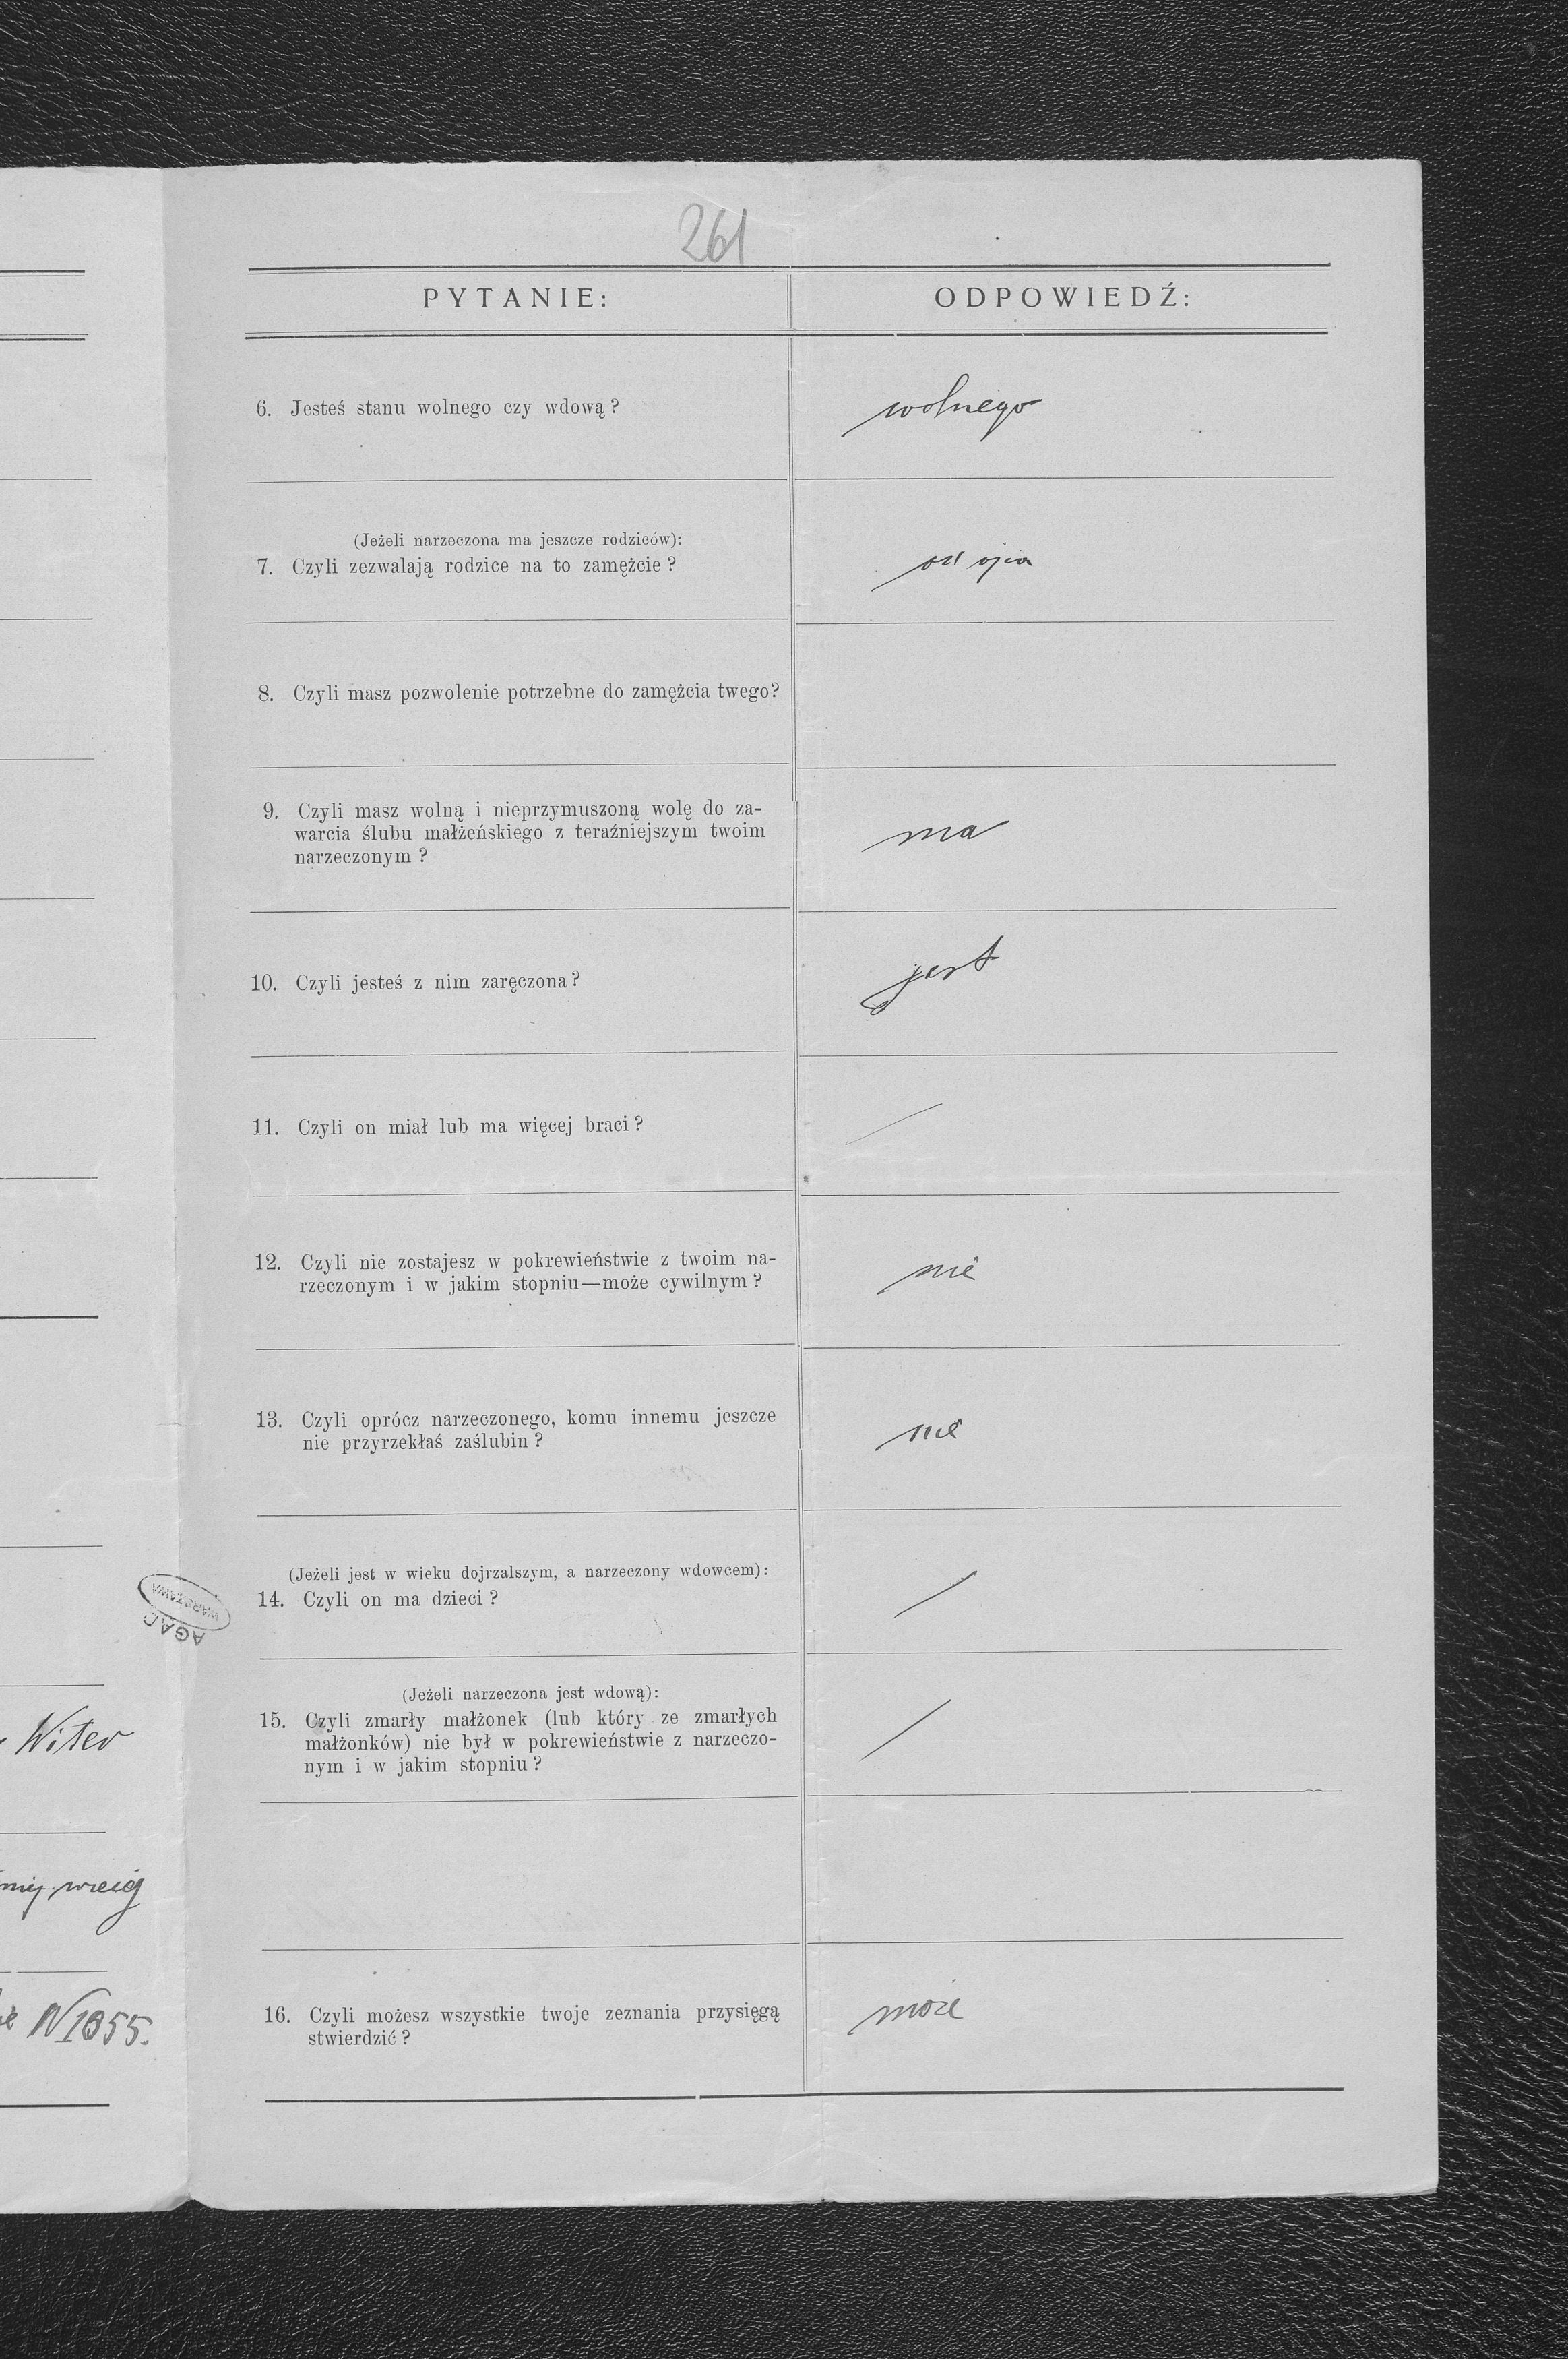 261
PYTANIE:
ODPOWIEDŹ:
6. Jesteś stanu wolnego czy wdową?
wolnego
(Jeżeli narzeczona ma jeszcze rodziców):
7. Czyli zezwalają rodzice na to zamężcie?
od ojca
8. Czyli masz pozwolenie potrzebne do zamężcia twego?
9. Czyli masz wolną i nieprzymuszoną wolę do za-
warcia ślubu małżeńskiego z teraźniejszym twoim
narzeczonym?
ma
10. Czyli jesteś z nim zaręczona?
jest
11. Czyli on miał lub ma więcej braci?
12. Czyli nie zostajesz w pokrewieństwie z twoim na-
rzeczonym i w jakim stopniu—może cywilnym?
nie
13. Czyli oprócz narzeczonego, komu innemu jeszcze
nie przyrzekłaś zaślubin?
nie
(Jeżeli jest w wieku dojrzalszym, a narzeczony wdowcem):
14. Czyli on ma dzieci?
(Jeżeli narzeczona jest wdową):
15. Czyli zmarły małżonek (lub który ze zmarłych
małżonków) nie był w pokrewieństwie z narzeczo-
nym i w jakim stopniu?
16. Czyli możesz wszystkie twoje zeznania przysięgą
stwierdzić?
może
AGAD
WARSZAWA
Witer
N 1355.